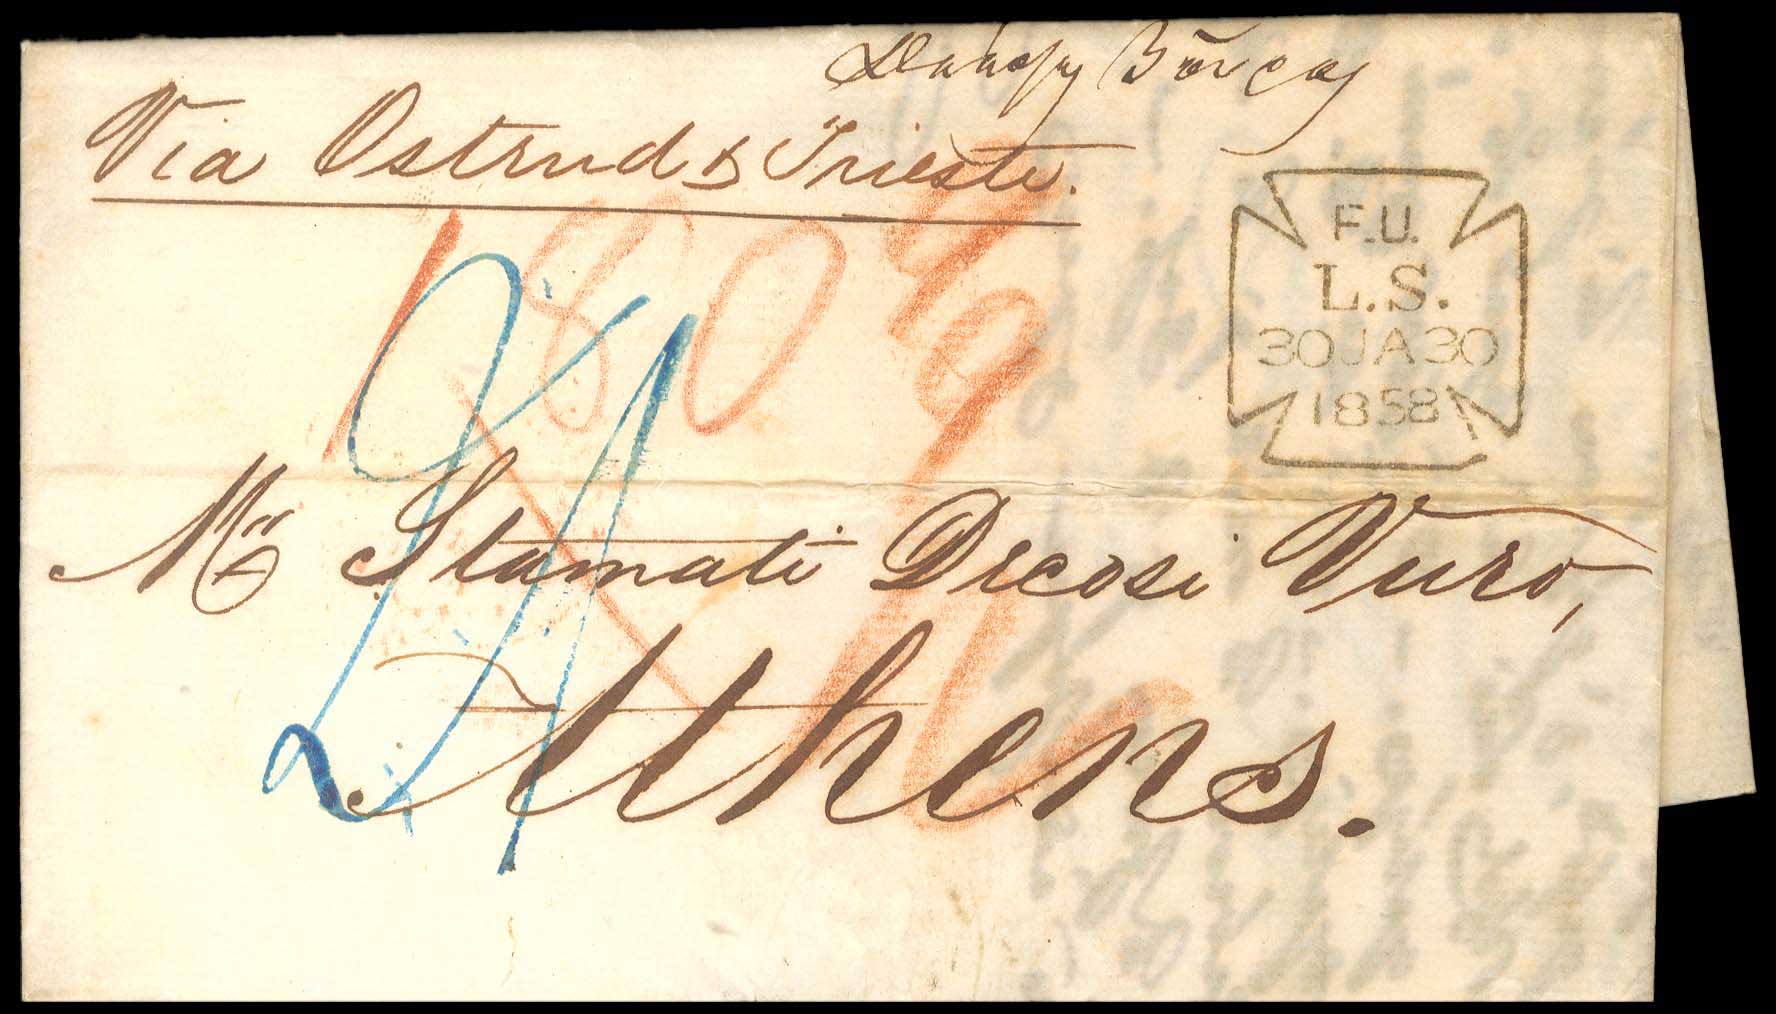 Via Ostend & Trieste.
F.U.
L.S.
30JA30
1858
180
Mr Stamati Decosi Vuro,
Athens.